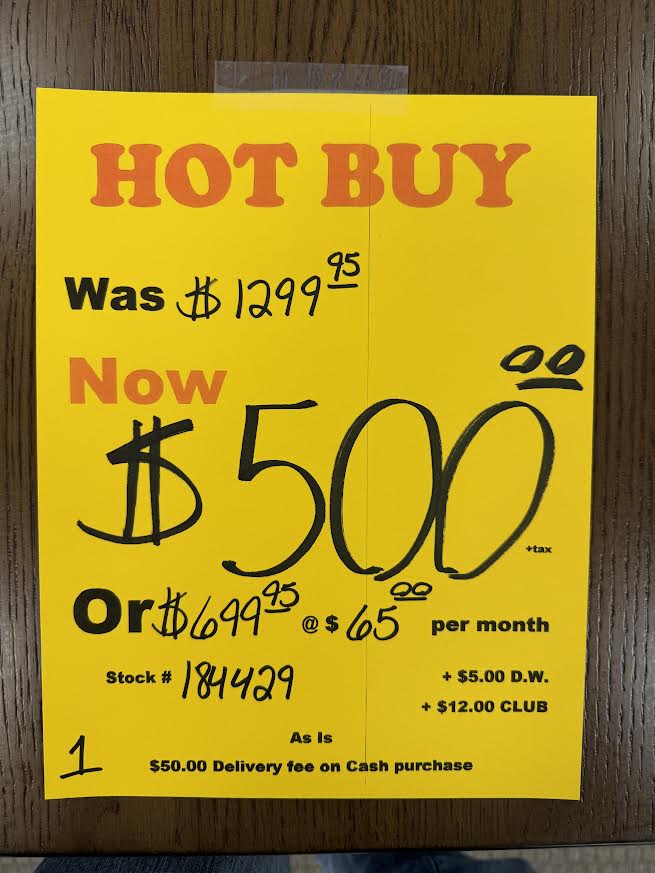 HOT BUY
Was $1299.95
Now
$500.00
+tax
Or $699.95 @ $ 65.00 per month
Stock # 184429 + $5.00 D.W.
+ $12.00 CLUB
As Is
1 $50.00 Delivery fee on Cash purchase